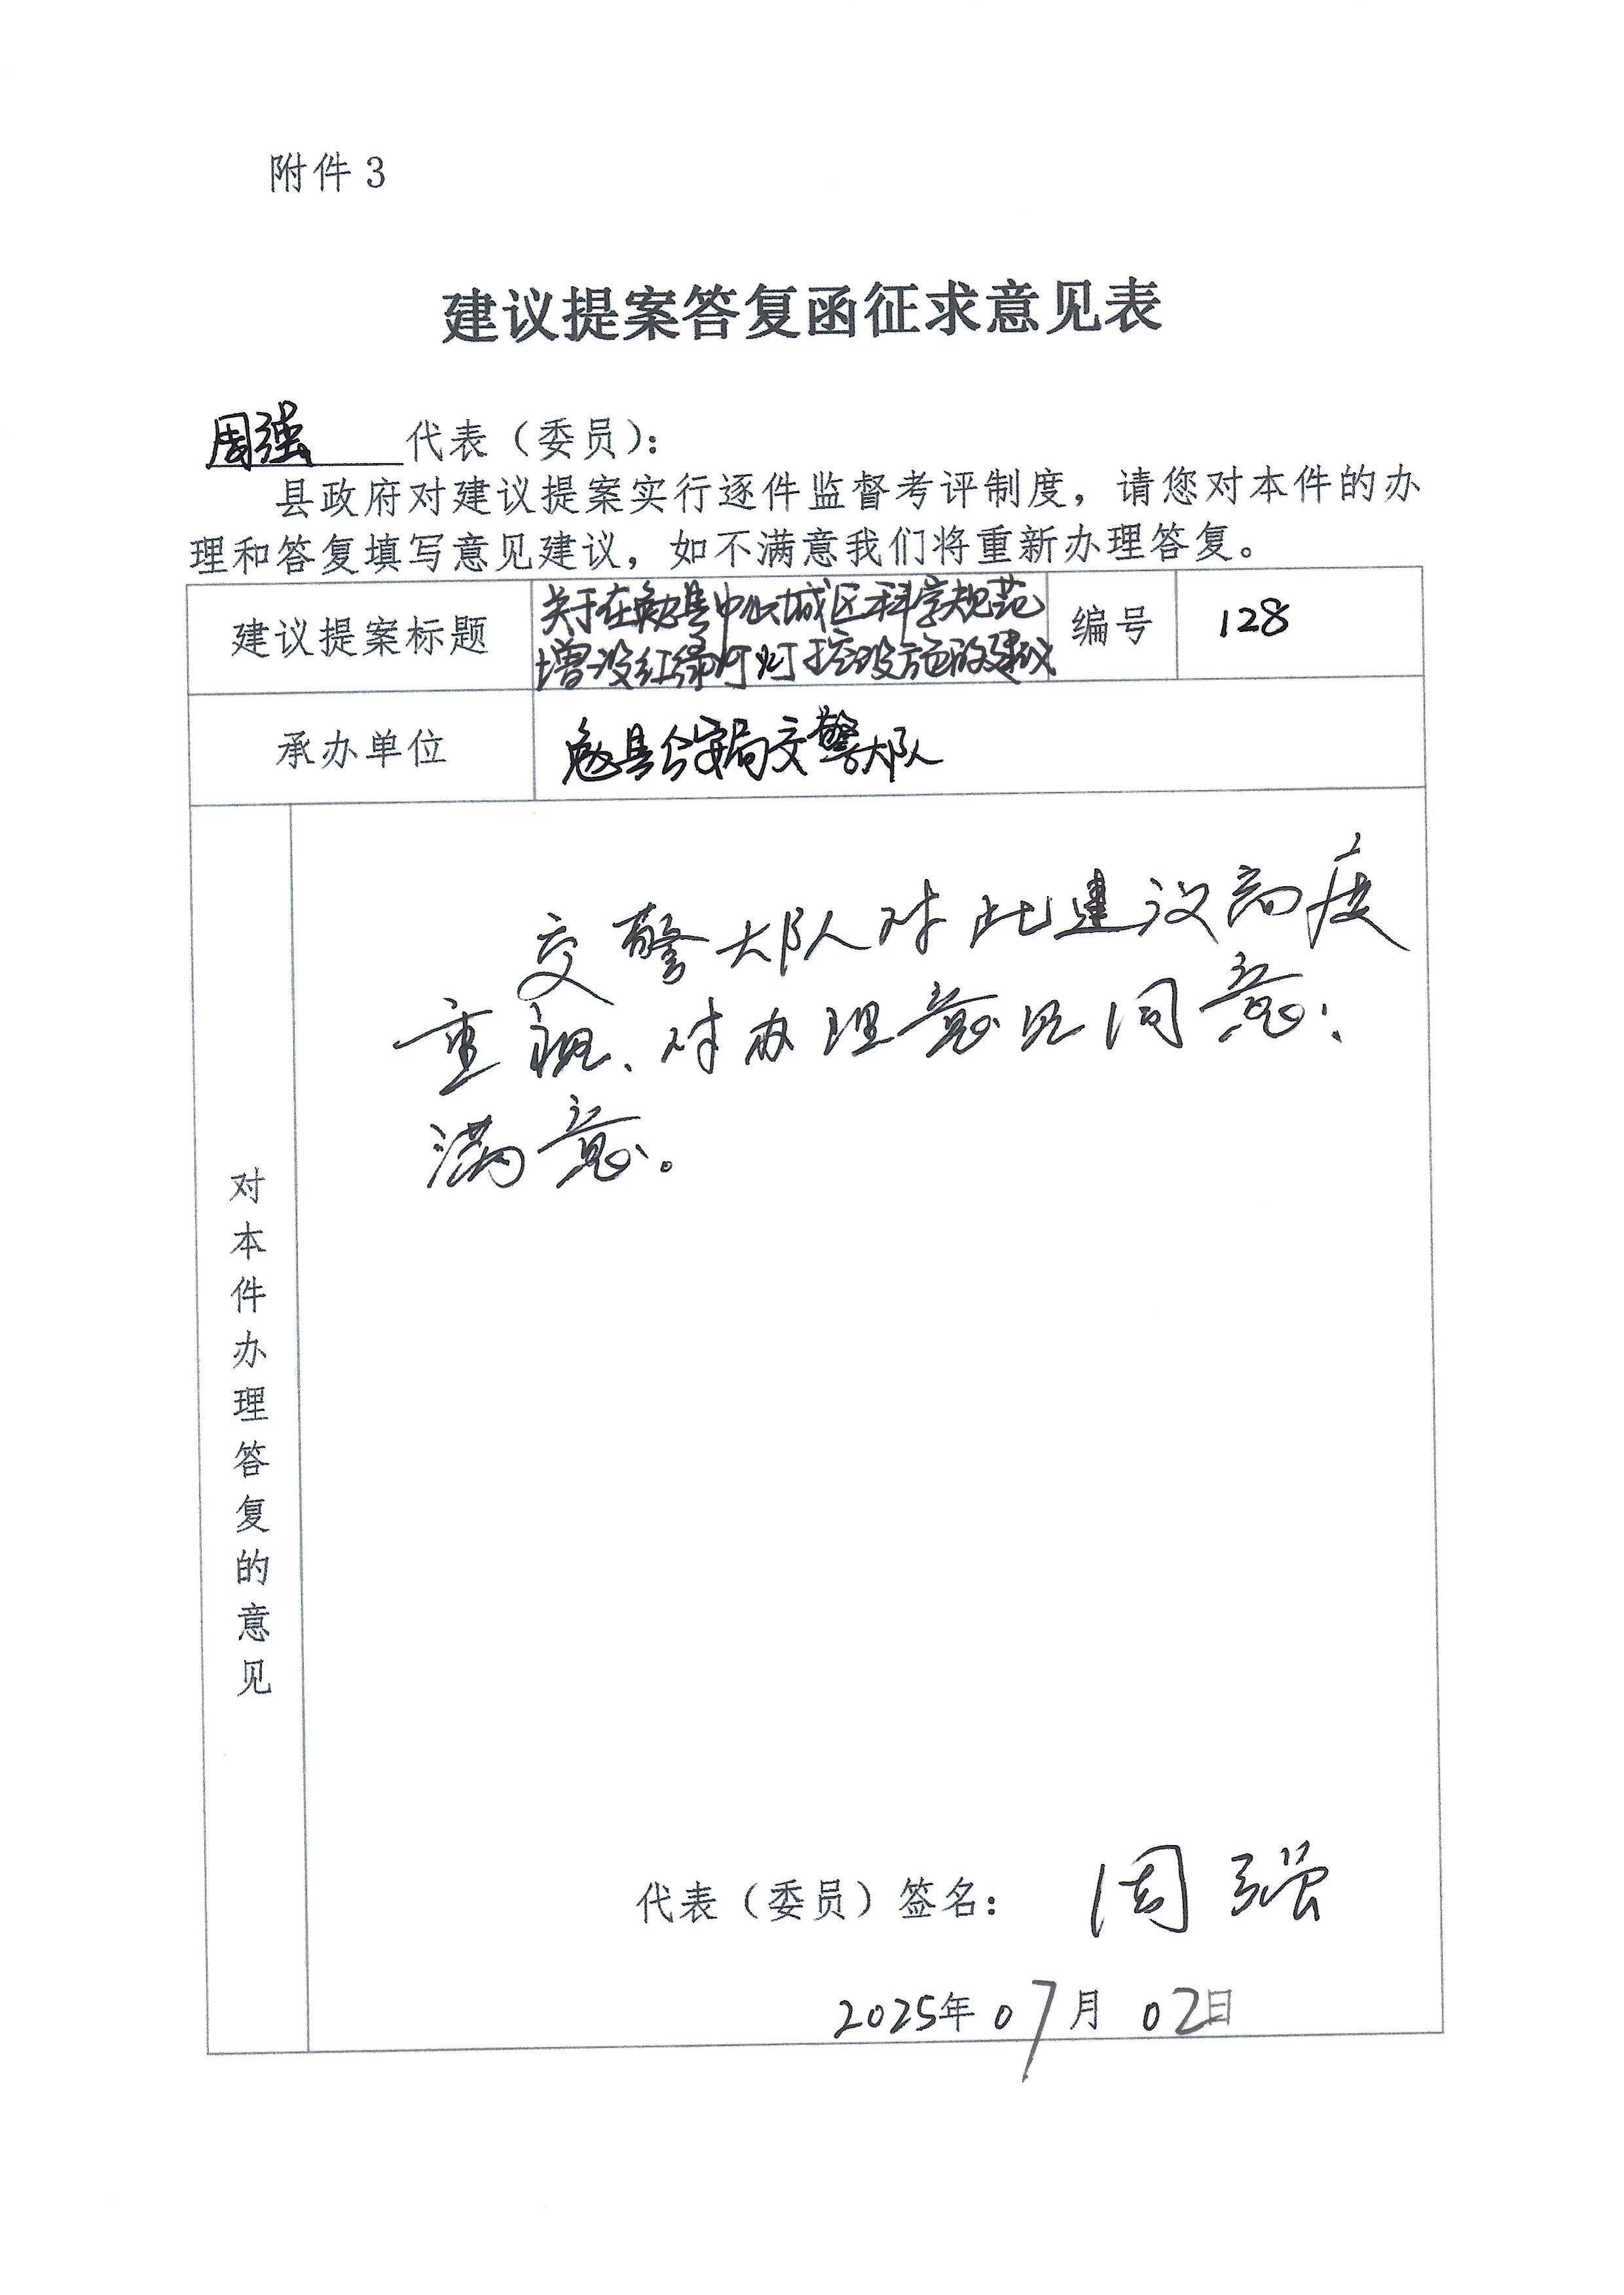 附件 3
建议提案答复函征求意见表
周强 代表（委员）：
县政府对建议提案实行逐件监督考评制度，请您对本件的办
理和答复填写意见建议，如不满意我们将重新办理答复。
建议提案标题
关于在勉县中心城区科学规范
增设红绿灯灯控设施的建议
编号
128
承办单位
勉县公安局交警大队
对本件办理答复的意见
交警大队对此建议高度
重视、对办理意见同意；
满意。
代表（委员）签名： 周强
2025年07月02日